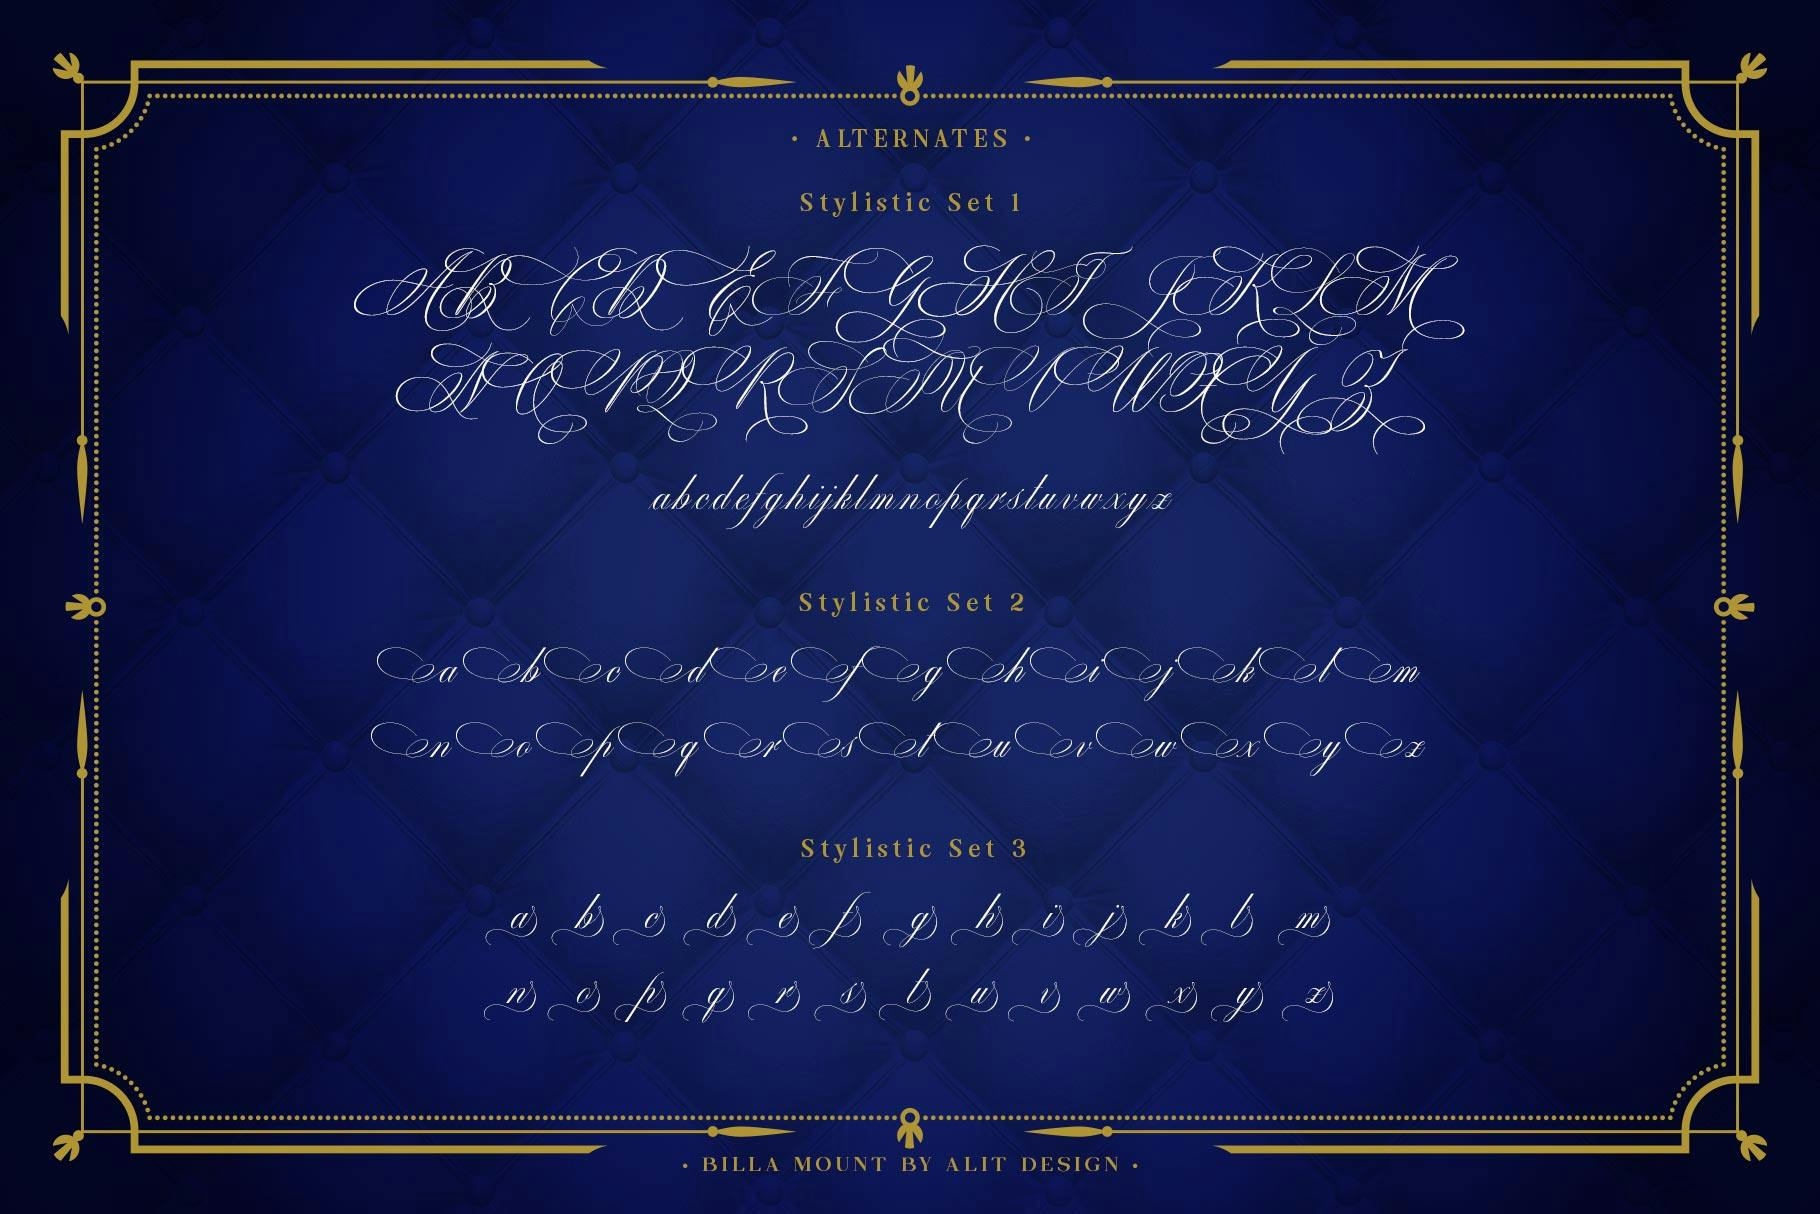 · ALTERNATES ·
Stylistic Set 1
ABCDEFGHIJKLM
NOPQRSTUVWXYZ
abcdefghijklmnopqrstuvwxyz
Stylistic Set 2
abcdefghijklm
nopqrstuvwxyz
Stylistic Set 3
a b c d e f g h i j k l m
n o p q r s t u v w x y z
· BILLA MOUNT BY ALIT DESIGN ·